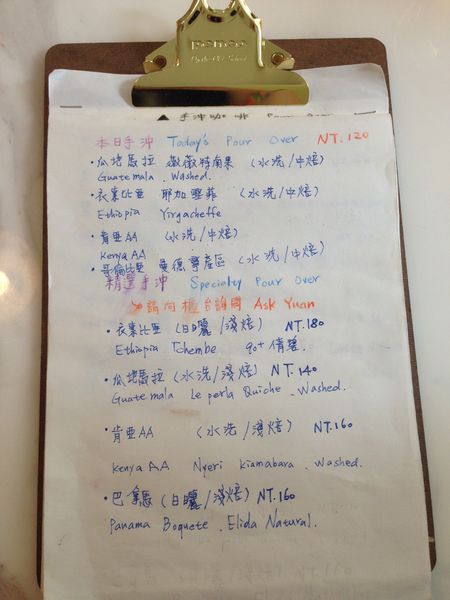 ▲ 手沖咖啡
本日手沖 Today's Pour Over NT.120
・瓜地馬拉 薇薇特南果 (水洗/中焙)
Guatemala . Washed.
・衣索比亞 耶加雪菲 (水洗/中焙)
Ethiopia Yirgacheffe
・肯亞AA (水洗/中焙)
Kenya AA
・哥倫比亞 曼德寧產區 (水洗/中焙)
精選手沖 Specialty Pour Over
請向櫃台詢問 Ask Yuan
・衣索比亞 (日曬/淺焙) NT.180
Ethiopia Tchembe 90+ 倩碧.
・瓜地馬拉 (水洗/淺焙) NT.140
Guatemala Le perla Quiche . Washed.
・肯亞AA (水洗/淺焙) NT.160
Kenya AA Nyeri Kiamabara . Washed.
・巴拿馬 (日曬/淺焙) NT.160
Panama Boquete . Elida Natural.